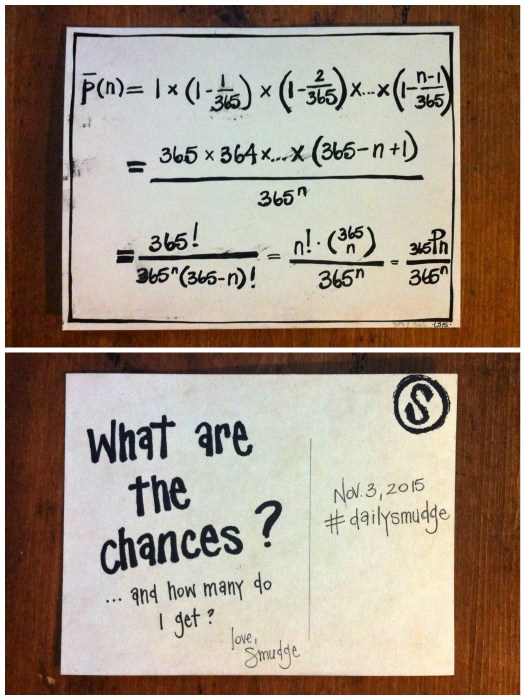 p̅(n) = 1 × (1 - 1/365) × (1 - 2/365) × ... × (1 - n-1/365)
= 365 × 364 × ... × (365 - n + 1) / 365ⁿ
= 365! / 365ⁿ(365 - n)! = n! · (365 n) / 365ⁿ = 365Pn / 365ⁿ
What are
the
chances?
... and how many do
I get?
love,
Smudge
S
Nov. 3, 2015
#dailysmudge